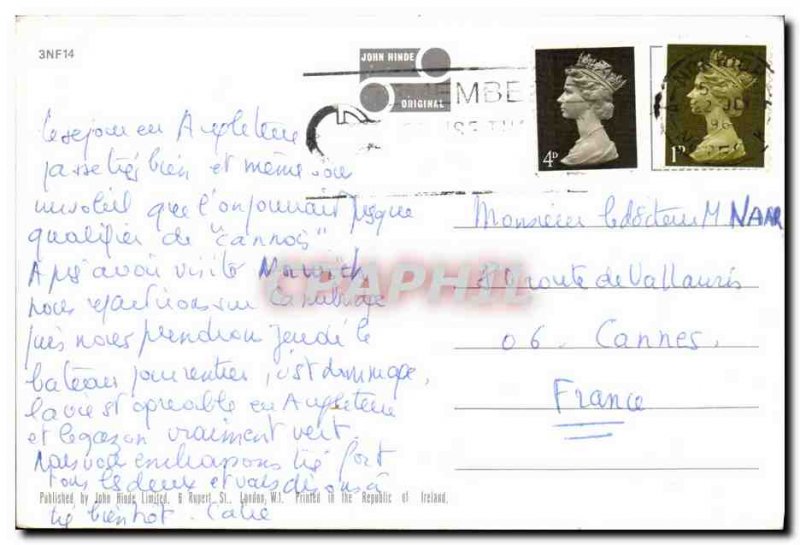 3NF14
JOHN HINDE
ORIGINAL
EMBE
4D
1D
le sejour en Angleterre
passe très bien et même sous
un soleil que l'on pourrait presque
qualifier de "cannois"
Après avoir visité Norwich
nous repartirons sur Cambridge
puis nous prendrons jeudi le
bateau pour rentrer, c'est dommage,
la vie est agreable en Angleterre
et le gazon vraiment vert.
Nous vous embrassons très fort
tous les deux et vous disons à
très bientôt.
Monsieur le docteur M NAAR
route de Vallauris
06. Cannes.
France
CPAPHIL
Published by John Hinde Limited, 6 Rupert St., London, W.1. Printed in the Republic of Ireland.